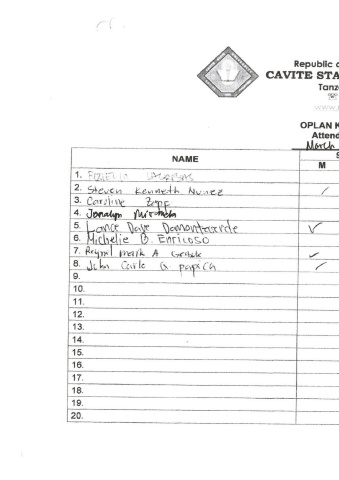 Republic o
CAVITE STA
Tanz
OPLAN K
Attend
March
NAME
S
M
1.
2. Steven Kenneth Nunez
3. Caroline Zepf
4. Jonalyn
5. Lance Dave Damonteverde
6. Michelle B. Enriloso
7. Reymil Mark A
8. John Carlo G.
9.
10.
11.
12.
13.
14.
15.
16.
17.
18.
19.
20.